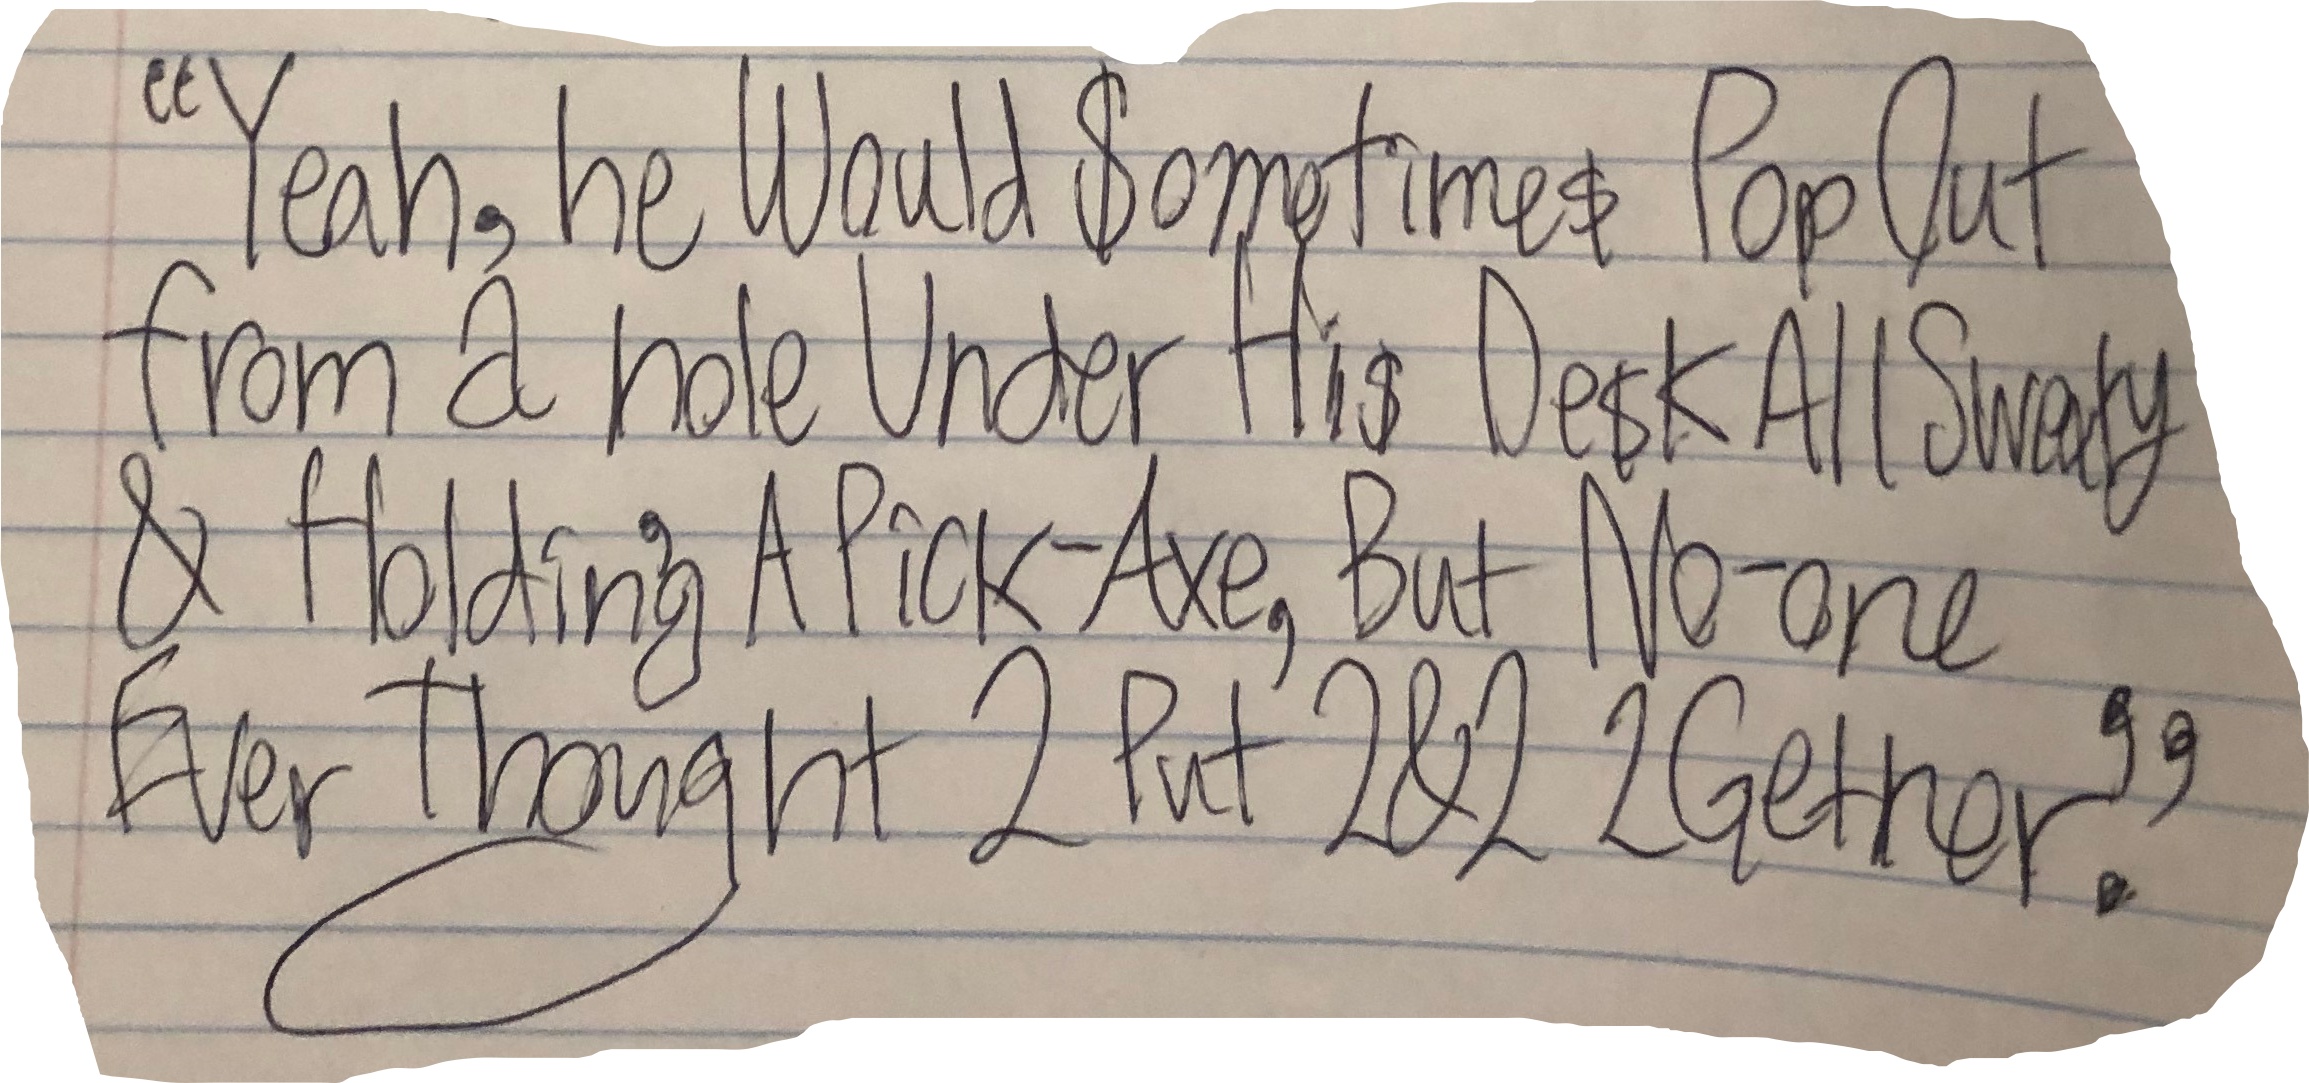 “Yeah, he Would $ometime$ Pop Out
from a hole Under Hi$ De$k All Sweaty
& Holding A Pick-Axe, But No-one
Ever Thought 2 Put 2&2 2Gether.”